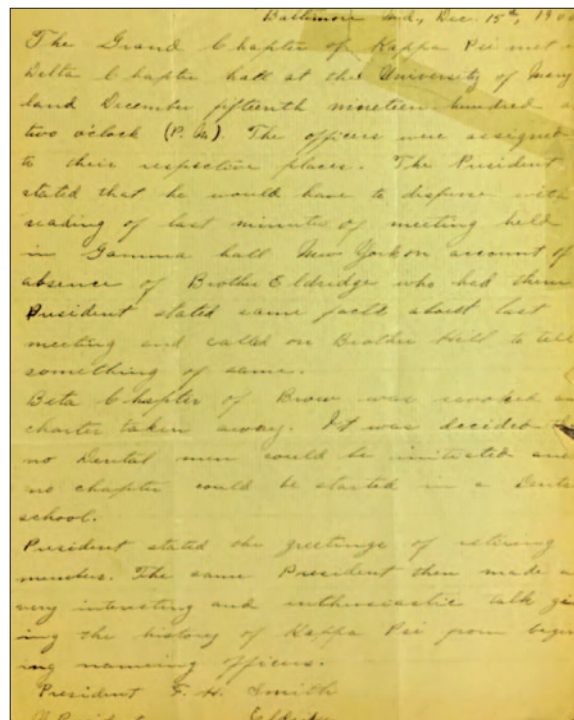 Baltimore Md., Dec. 15th, 190
The Grand Chapter of Kappa Psi met
Delta Chapter hall at the University of Mary
land December fifteenth nineteen hundred a
two o'clock (P. M). The officers were assigned
to their respective places. The President
stated that he would have to dispense with
reading of last minutes of meeting held
in Gamma hall New York on account of
absence of Brother Eldridge who had them
President stated some facts about last
meeting and called on Brother Hill to tell
something of same.
Beta Chapter of Brow was revoked an
charter taken away. It was decided tha
no Dental men could be initiated and
no chapter could be started in a Dental
school.
President stated the greetings of retiring
members. The same President then made a
very interesting and enthusiastic talk giv
ing the history of Kappa Psi from begin
ing naming officers.
President F. H. Smith
V. President Eldridge